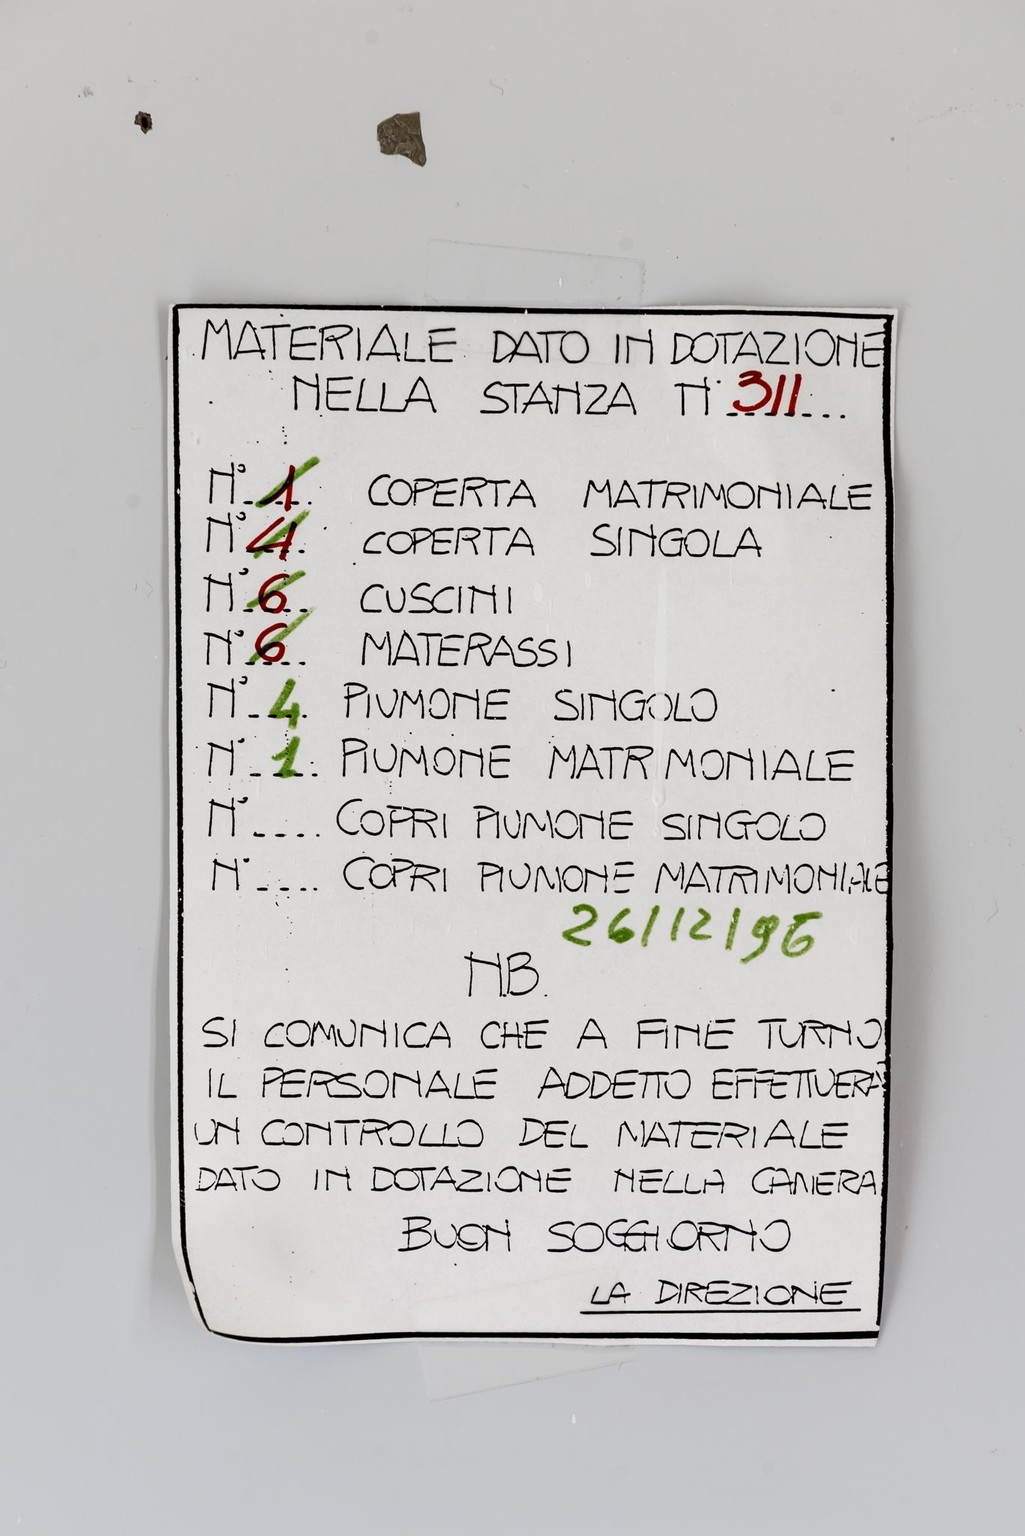 MATERIALE DATO IN DOTAZIONE
NELLA STANZA N° 311
N° 1 COPERTA MATRIMONIALE
N° 4 COPERTA SINGOLA
N° 6 CUSCINI
N° 6 MATERASSI
N° 4 PIUMONE SINGOLO
N° 1 PIUMONE MATRIMONIALE
N°.... COPRI PIUMONE SINGOLO
N°.... COPRI PIUMONE MATRIMONIALE
26/12/96
N.B.
SI COMUNICA CHE A FINE TURNO
IL PERSONALE ADDETTO EFFETTUERA'
UN CONTROLLO DEL MATERIALE
DATO IN DOTAZIONE NELLA CAMERA
BUON SOGGIORNO
LA DIREZIONE